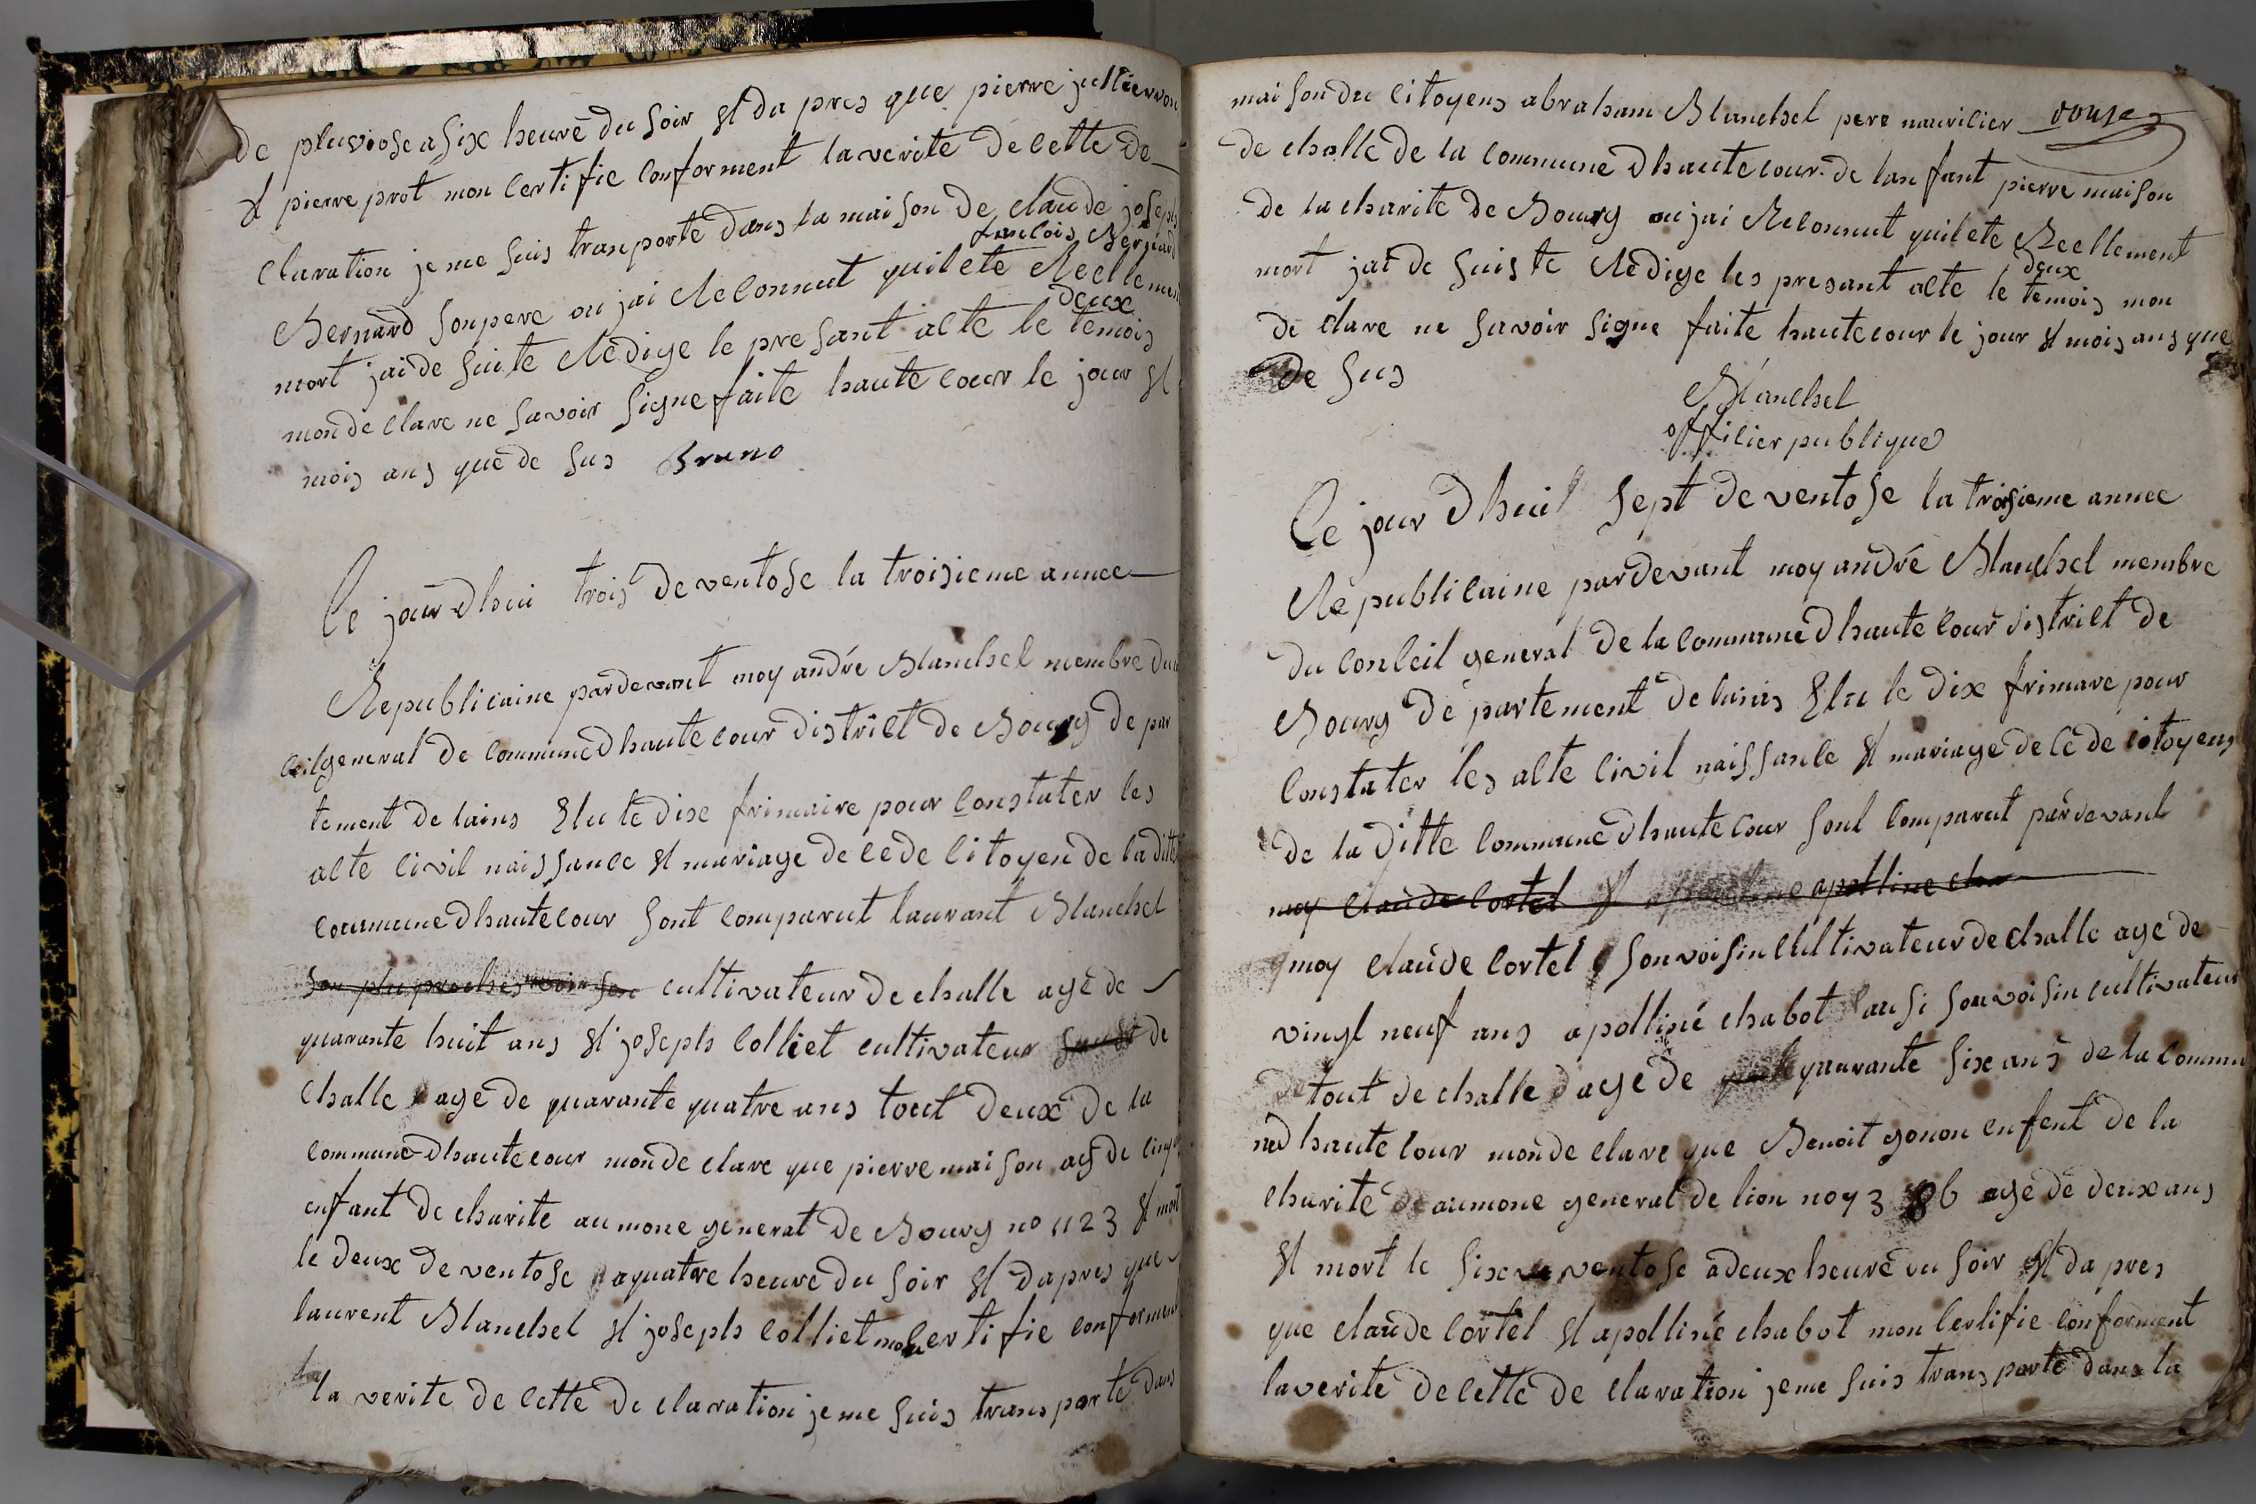 de pluviose a six heure du soir et da pres que pierre jultiervon
et pierre prot mon certifie conforment la verite de cette de
claration je me suis tranporte dans la maison de claude joseph
francois Bernard
Bernard son pere ou jai Reconnut quil ete Reellement
mort jai de suite Redige le presant acte le temois
deux
mon de clare ne savoir signe faite haute cour le jour et
mois ans que de sus Bruno
Ce jour dhui trois de ventose la troisieme annee
Republicaine pardevant moy andré Blanchel membre du con
ceil general de commune dhaute cour district de Bourg de par
tement de lains Elu le dix frimaire pour constater les
acte civil naissance et mariage de cede citoyen de la ditte
commune dhautecour sont comparut laurant Blanchel
son plu proches voisin cultivateur de challe agé de
quarante huit ans et joseph Colliet cultivateur de
Challe age de quarante quatre ans tout deux de la
commune dhautecour mon de clare que pierre maison age de cinq
enfant de charite aumone general de Bourg no 1123 et mort
le deux de ventose a quatre heure du soir et dapres que
laurent Blanchel et joseph colliet mon certifie conforment
la verite de cette de claration je me suis trans porte dans
maison du citoyens abraham Blanchel pere nauricier rouse
de challe de la commune dhautecour de lanfant pierre maison
de la charite de Bourg ou jai Reconnut quil ete Reellement
mort jai de suiste Redige les presant acte le temois mon
deux
de clare ne savoir signe faite hautecour le jour et mois ans que
de sus
Blanchel
officier publique
Ce jour dhuil sept de ventose la troisieme annee
Republicaine pardevant moy andré Blanchel membre
du conceil general de la commune dhaute cour district de
Bourg de partement de lains Elu le dix frimare pour
constater les acte civil naissance et mariage de ce de citoyens
de la ditte commune dhautecour sont comparut pardevant
moy claude Cortel et apolline cha
moy claude Cortel son voisin cultivateur de challe age de
vingt neuf ans apolliné chabot ausi son voisin cultivateur
tout de challe dagé de quarante six ans de la commu
ne dhaute cour mon de clare que Benoit gonon enfent de la
charité de aumone general de lion no y 3 86 age de deux ans
et mort le six ventose a deux heure du soir et da pres
que claude Cortel et apolliné chabot mon certifie conforment
la verite de cette de claration je me suis trans porte dans la